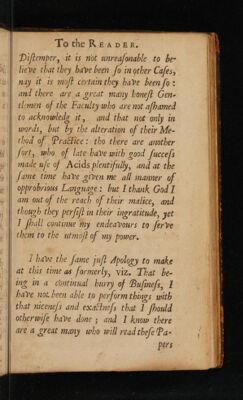 To the READER.
Diſtemper, it is not unreaſonable to be-
lieve that they have been ſo in other Caſes,
nay it is moſt certain they have been ſo:
and there are a great many honeſt Gen-
tlemen of the Faculty who are not aſhamed
to acknowledg it, and that not only in
words, but by the alteration of their Me-
thod of Practice: tho there are another
ſort, who of late have with good ſucceſs
made uſe of Acids plentifully, and at the
ſame time have given me all manner of
opprobrious Language: but I thank God I
am out of the reach of their malice, and
though they perſiſt in their ingratitude, yet
I ſhall continue my endeavours to ſerve
them to the utmoſt of my power.
I have the ſame juſt Apology to make
at this time as formerly, viz. That be-
ing in a continual hurry of Buſineſs, I
have not been able to perform things with
that niceneſs and exactneſs that I ſhould
otherwiſe have done; and I know there
are a great many who will read theſe Pa-
pers